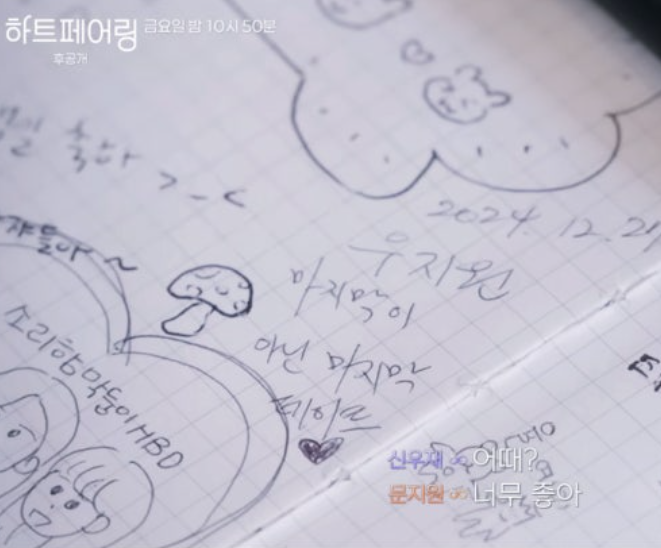 하트페어링 금요일 밤 10시 50분
후공개
축하 >_<
2024. 12. 21
우지원
마지막이
아닌 마지막
데이트
소리향막둥이HBD
신우재 어때?
문지원 너무 좋아